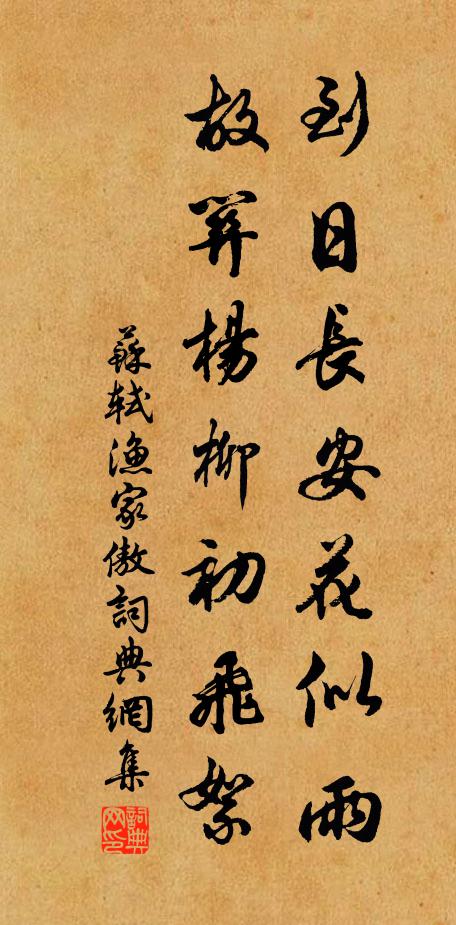 到日長安花似雨
故關楊柳初飛絮
蘇軾漁家傲詞典網集
詞典网印